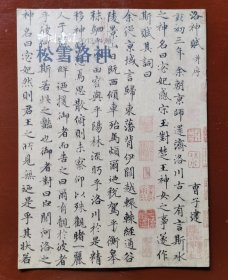 松雪洛神
洛神賦 并序
曹子建
黃初三年余朝京師還濟洛川古人有言斯水
之神名曰宓妃感宋玉對楚王神女之事遂作
斯賦其詞曰
余從京域言歸東藩背伊闕越轘轅經通谷
陵景山日既西傾車殆馬煩爾迺稅駕乎蘅皋
秣駟田容與乎陽林流眄乎洛川於是精
焉思散俯則未察仰以殊觀睹一麗
畔迺援御者而告之曰爾有覿於彼者
乎彼斯若此之豔也御者對曰臣聞河洛之
神名曰宓妃然則君王之所見無迺是乎其狀若